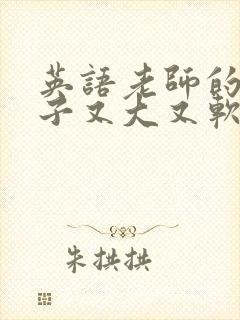 英語老師的
子又大又軟
朱拱拱